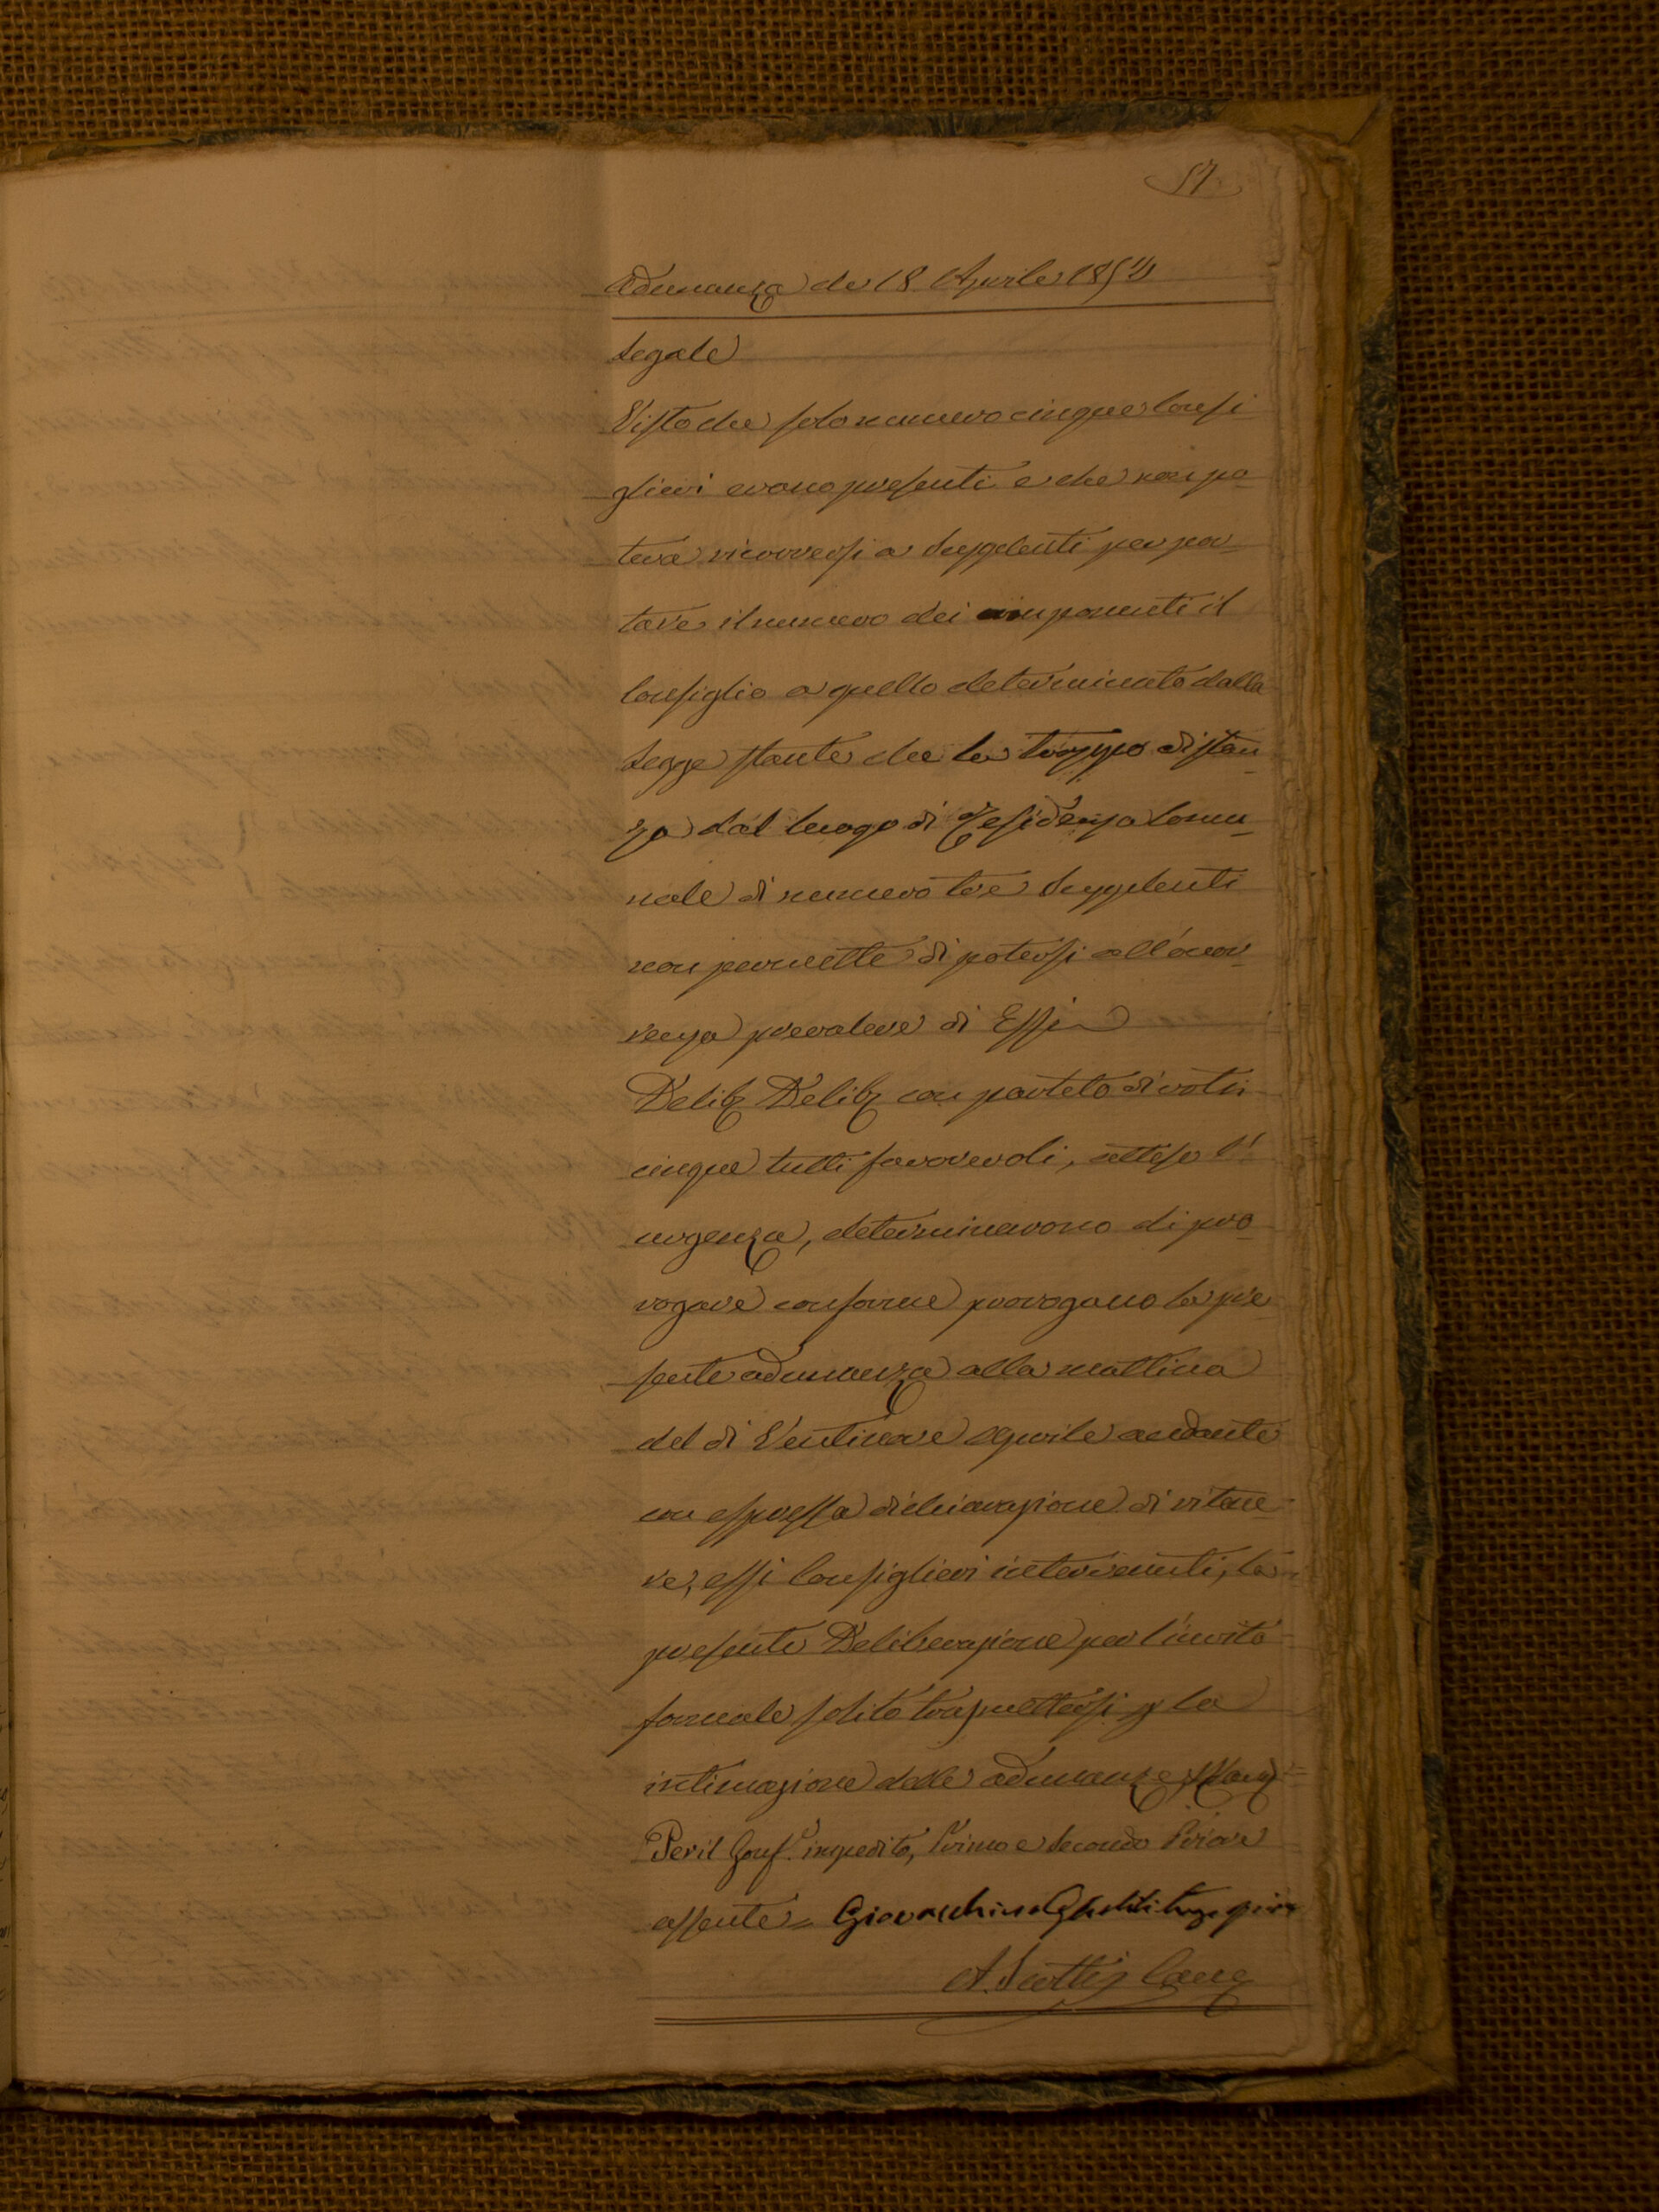 57
Adunanza de 18 Aprile 1854
Legale
Visto che solo numero cinque Consi
glieri erano presenti e che non po-
teva ricorrersi a Supplenti per por-
tare il numero dei componenti il
Consiglio a quello determinato dalla
Legge stante che la troppo distan-
za dal luogo di Residenza Comu-
nale di numero tre Supplenti
non permette di potersi all'occor-
renza prevalere di Essi
Delib Delib con partito di voti
cinque tutti favorevoli, atteso l'
urgenza, determinarono di pro-
rogare conforme prorogano la pre-
sente adunanza alla mattina
del di Ventinove Aprile andante
con espressa dichiarazione di ritene-
re, essi Consiglieri intervenuti, la
presente Deliberazione per l'invito
formale solito trasmettersi p la
intimazione delle adunanze
Per il Gonf. impedito, Primo e Secondo Priore
assente = Giovacchino
A. Cang